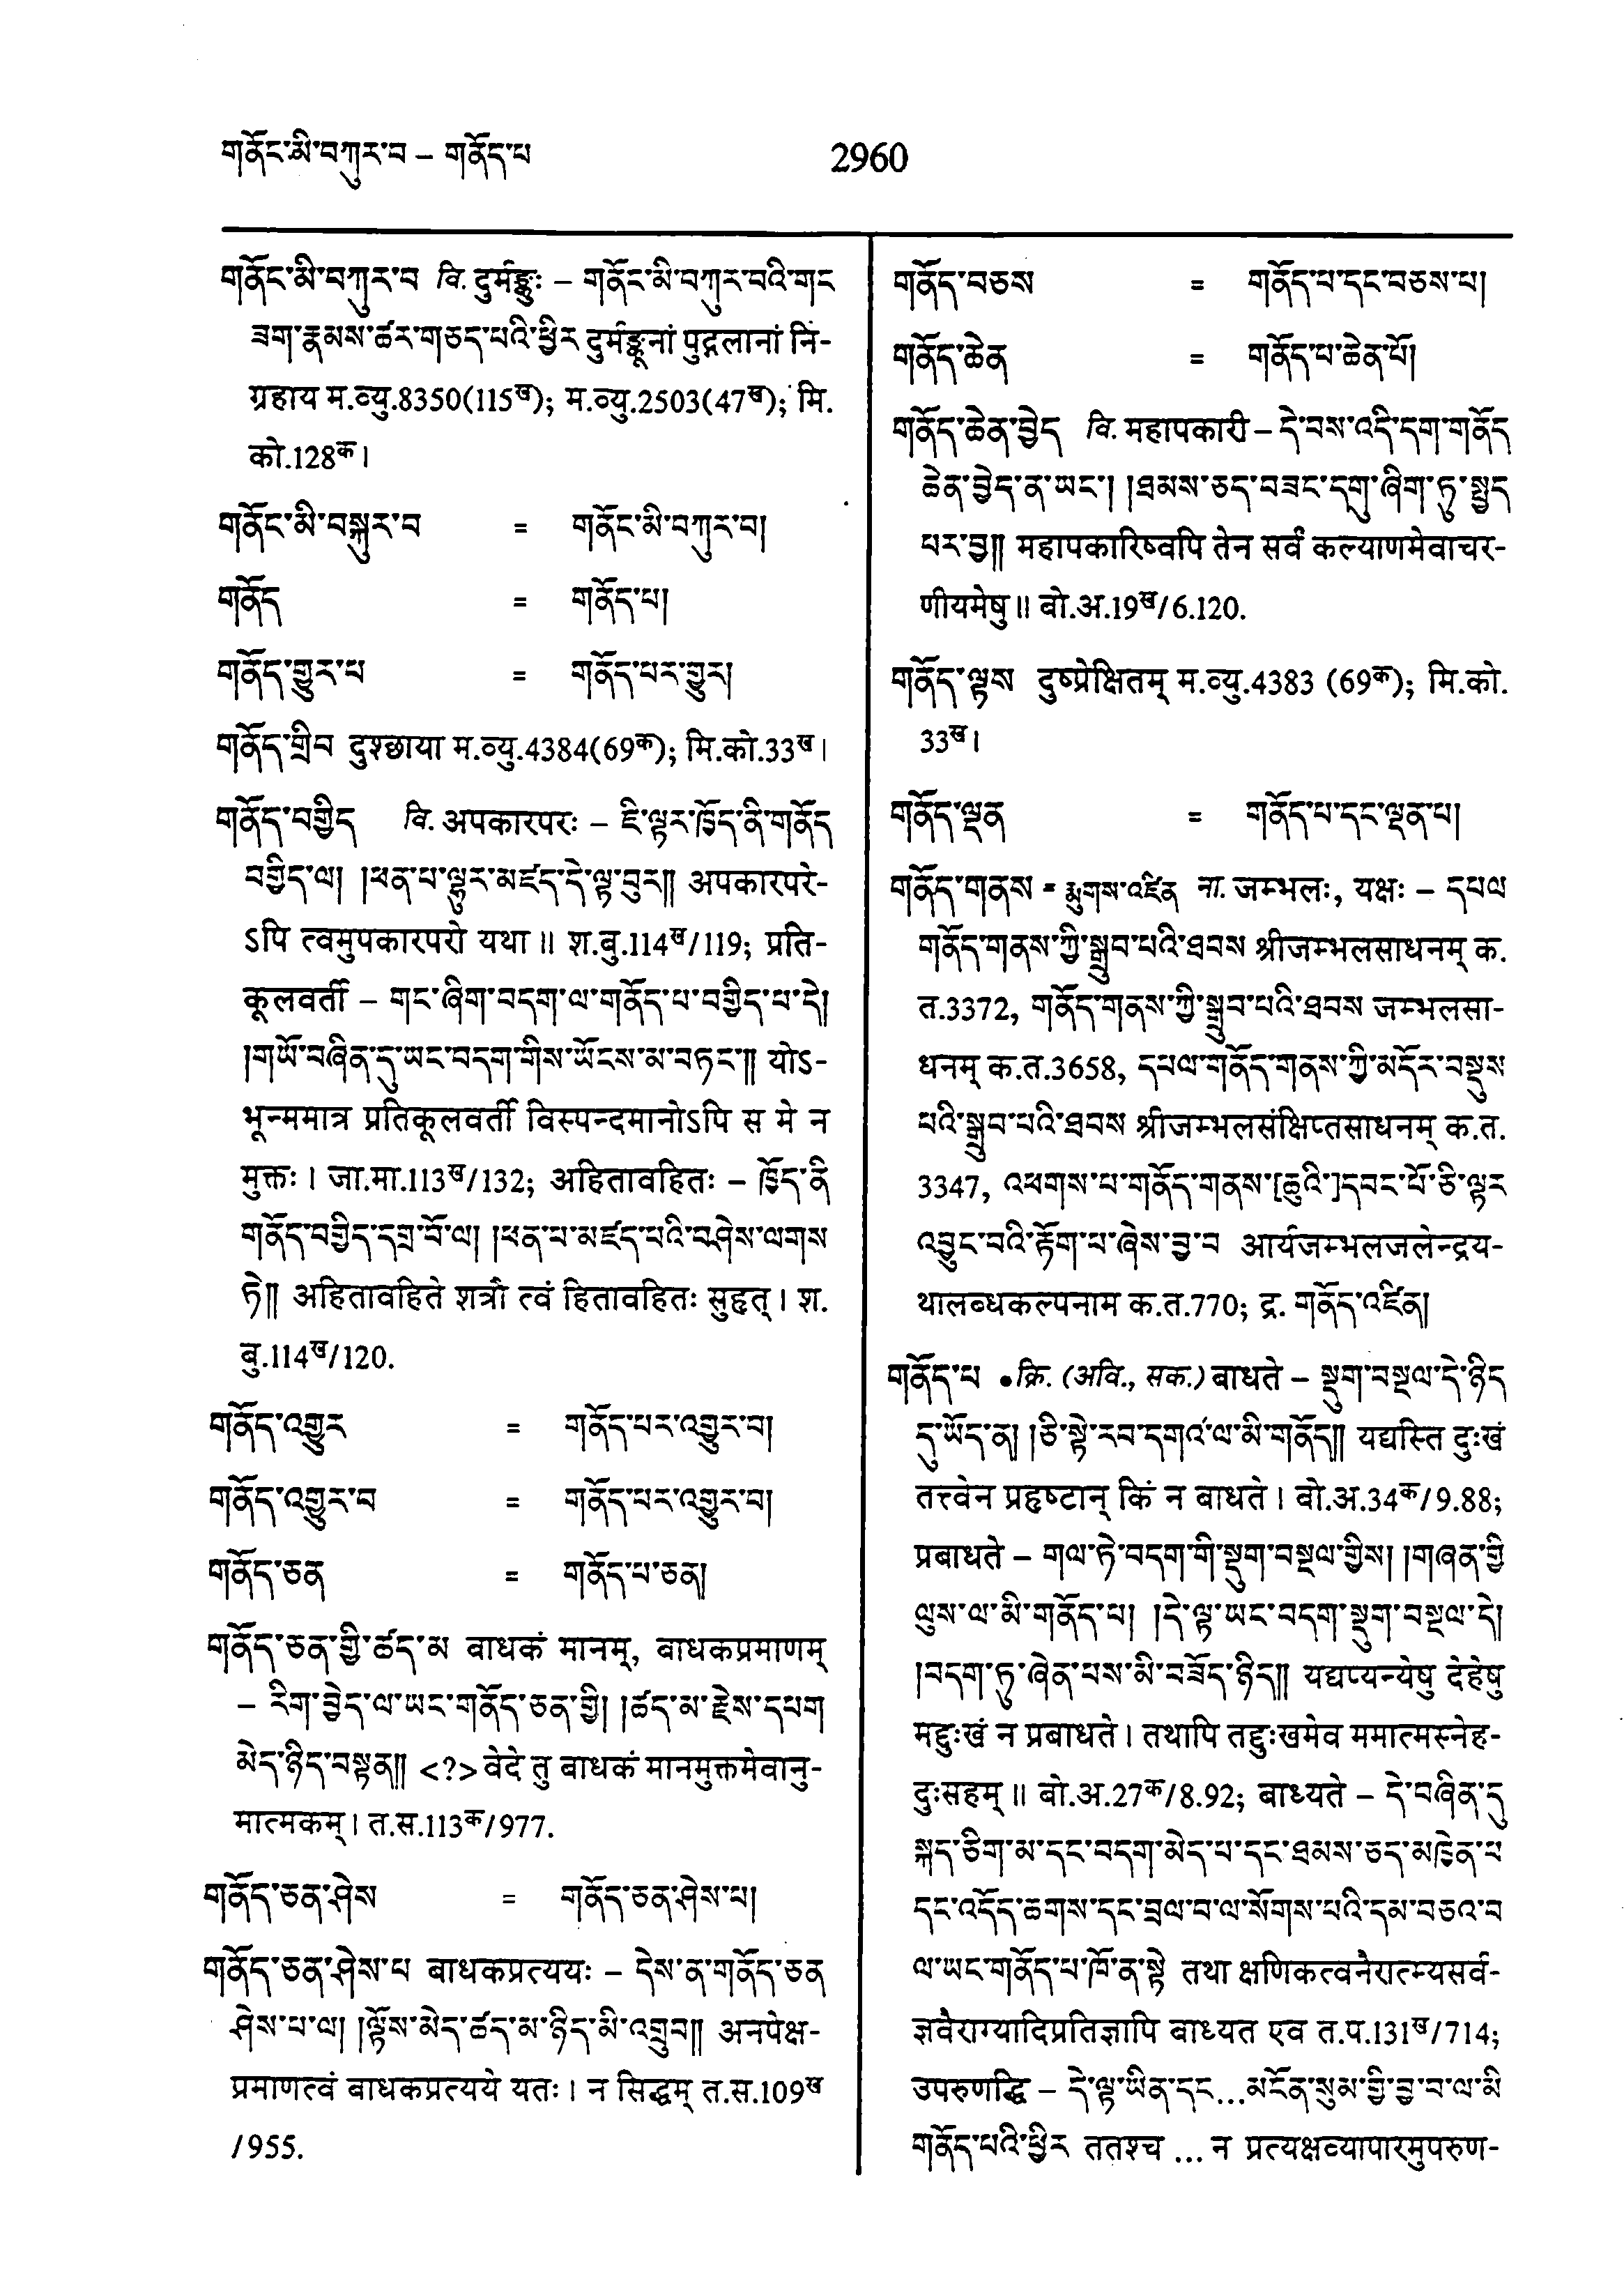 གནོང་མི་བཀུར་བ – གནོད་པ
2960
གནོང་མི་བཀུར་བ वि. दुर्मङ्कुः – གནོང་མི་བཀུར་བའི་གང
ཟག་རྣམས་ཚར་གཅད་པའི་ཕྱིར दुर्मङ्कूनां पुद्गलानां नि-
ग्रहाय म.व्यु.8350(115ख); म.व्यु.2503(47ख); मि.
को.128क।
གནོང་མི་བསྐུར་བ = གནོང་མི་བཀུར་བ།
གནོད = གནོད་པ།
གནོད་གྱུར་པ = གནོད་པར་གྱུར།
གནོད་གྲིབ दुश्छाया म.व्यु.4384(69क); मि.को.33ख।
གནོད་བགྱིད वि. अपकारपरः – ཇི་ལྟར་ཁྱོད་ནི་གནོད
བགྱིད་ལ། །ཕན་པ་ལྷུར་མཛད་དེ་ལྟ་བུར།། अपकारपरे-
ऽपि त्वमुपकारपरो यथा॥ श.बु.114ख/119; प्रति-
कूलवर्ती – གང་ཞིག་བདག་ལ་གནོད་པ་བགྱིད་པ་དེ།
།གཡོ་བཞིན་དུ་ཡང་བདག་གིས་ཡོངས་མ་བཏང་།། योऽ-
भून्ममात्र प्रतिकूलवर्ती विस्पन्दमानोऽपि स मे न
मुक्तः। जा.मा.113ख/132; अहितावहितः – ཁྱོད་ནི
གནོད་བགྱིད་དགྲ་བོ་ལ། །ཕན་པ་མཛད་པའི་བཤེས་ལགས
ཏེ།། अहितावहिते शत्रौ त्वं हितावहितः सुहृत्। श.
बु.114ख/120.
གནོད་འགྱུར = གནོད་པར་འགྱུར་བ།
གནོད་འགྱུར་བ = གནོད་པར་འགྱུར་བ།
གནོད་ཅན = གནོད་པ་ཅན།
གནོད་ཅན་གྱི་ཚད་མ बाधकं मानम्, बाधकप्रमाणम्
– རིག་བྱེད་ལ་ཡང་གནོད་ཅན་གྱི། །ཚད་མ་རྗེས་དཔག
མེད་ཉིད་བསྟན།། <?> वेदे तु बाधकं मानमुक्तमेवानु-
मात्मकम्। त.स.113क/977.
གནོད་ཅན་ཤེས = གནོད་ཅན་ཤེས་པ།
གནོད་ཅན་ཤེས་པ बाधकप्रत्ययः – དེས་ན་གནོད་ཅན
ཤེས་པ་ལ། །ལྟོས་མེད་ཚད་མ་ཉིད་མི་འགྲུབ།། अनपेक्ष-
प्रमाणत्वं बाधकप्रत्यये यतः। न सिद्धम् त.स.109ख
/955.
གནོད་བཅས = གནོད་པ་དང་བཅས་པ།
གནོད་ཆེན = གནོད་པ་ཆེན་པོ།
གནོད་ཆེན་བྱེད वि. महापकारी – དེ་བས་འདི་དག་གནོད
ཆེན་བྱེད་ན་ཡང་། །ཐམས་ཅད་བཟང་དགུ་ཞིག་ཏུ་སྤྱད
པར་བྱ།། महापकारिष्वपि तेन सर्वं कल्याणमेवाचर-
णीयमेषु॥ बो.अ.19ख/6.120.
གནོད་ལྟས दुष्प्रेक्षितम् म.व्यु.4383 (69क); मि.को.
33ख।
གནོད་ལྡན = གནོད་པ་དང་ལྡན་པ།
གནོད་གནས = རྨུགས་འཛིན ना. जम्भलः, यक्षः – དཔལ
གནོད་གནས་ཀྱི་སྒྲུབ་པའི་ཐབས श्रीजम्भलसाधनम् क.
त.3372, གནོད་གནས་ཀྱི་སྒྲུབ་པའི་ཐབས जम्भलसा-
धनम् क.त.3658, དཔལ་གནོད་གནས་ཀྱི་མདོར་བསྡུས
པའི་སྒྲུབ་པའི་ཐབས श्रीजम्भलसंक्षिप्तसाधनम् क.त.
3347, འཕགས་པ་གནོད་གནས་[ཆུའི་]དབང་པོ་ཅི་ལྟར
འབྱུང་བའི་རྟོག་པ་ཞེས་བྱ་བ आर्यजम्भलजलेन्द्रय-
थालब्धकल्पनाम क.त.770; द्र. གནོད་འཛིན།
གནོད་པ •क्रि. (अवि., सक.) बाधते – སྡུག་བསྔལ་དེ་ཉིད
དུ་ཡོད་ན། །ཅི་སྟེ་རབ་དགའ་ལ་མི་གནོད།། यद्यस्ति दुःखं
तत्त्वेन प्रहृष्टान् किं न बाधते। बो.अ.34क/9.88;
प्रबाधते – གལ་ཏེ་བདག་གི་སྡུག་བསྔལ་གྱིས། །གཞན་གྱི
ལུས་ལ་མི་གནོད་པ། །དེ་ལྟ་ཡང་བདག་སྡུག་བསྔལ་དེ།
།བདག་ཏུ་ཞེན་པས་མི་བཟོད་ཉིད།། यद्यप्यन्येषु देहेषु
मद्दुःखं न प्रबाधते। तथापि तद्दुःखमेव ममात्मस्नेह-
दुःसहम्॥ बो.अ.27क/8.92; बाध्यते – དེ་བཞིན་དུ
སྐད་ཅིག་མ་དང་བདག་མེད་པ་དང་ཐམས་ཅད་མཁྱེན་པ
དང་འདོད་ཆགས་དང་བྲལ་བ་ལ་སོགས་པའི་དམ་བཅའ་བ
ལ་ཡང་གནོད་པ་ཁོ་ན་སྟེ तथा क्षणिकत्वनैरात्म्यसर्व-
ज्ञवैराग्यादिप्रतिज्ञापि बाध्यत एव त.प.131ख/714;
उपरुणद्धि – དེ་ལྟ་ཡིན་དང...མངོན་སུམ་གྱི་བྱ་བ་ལ་མི
གནོད་པའི་ཕྱིར ततश्च ... न प्रत्यक्षव्यापारमुपरुण-